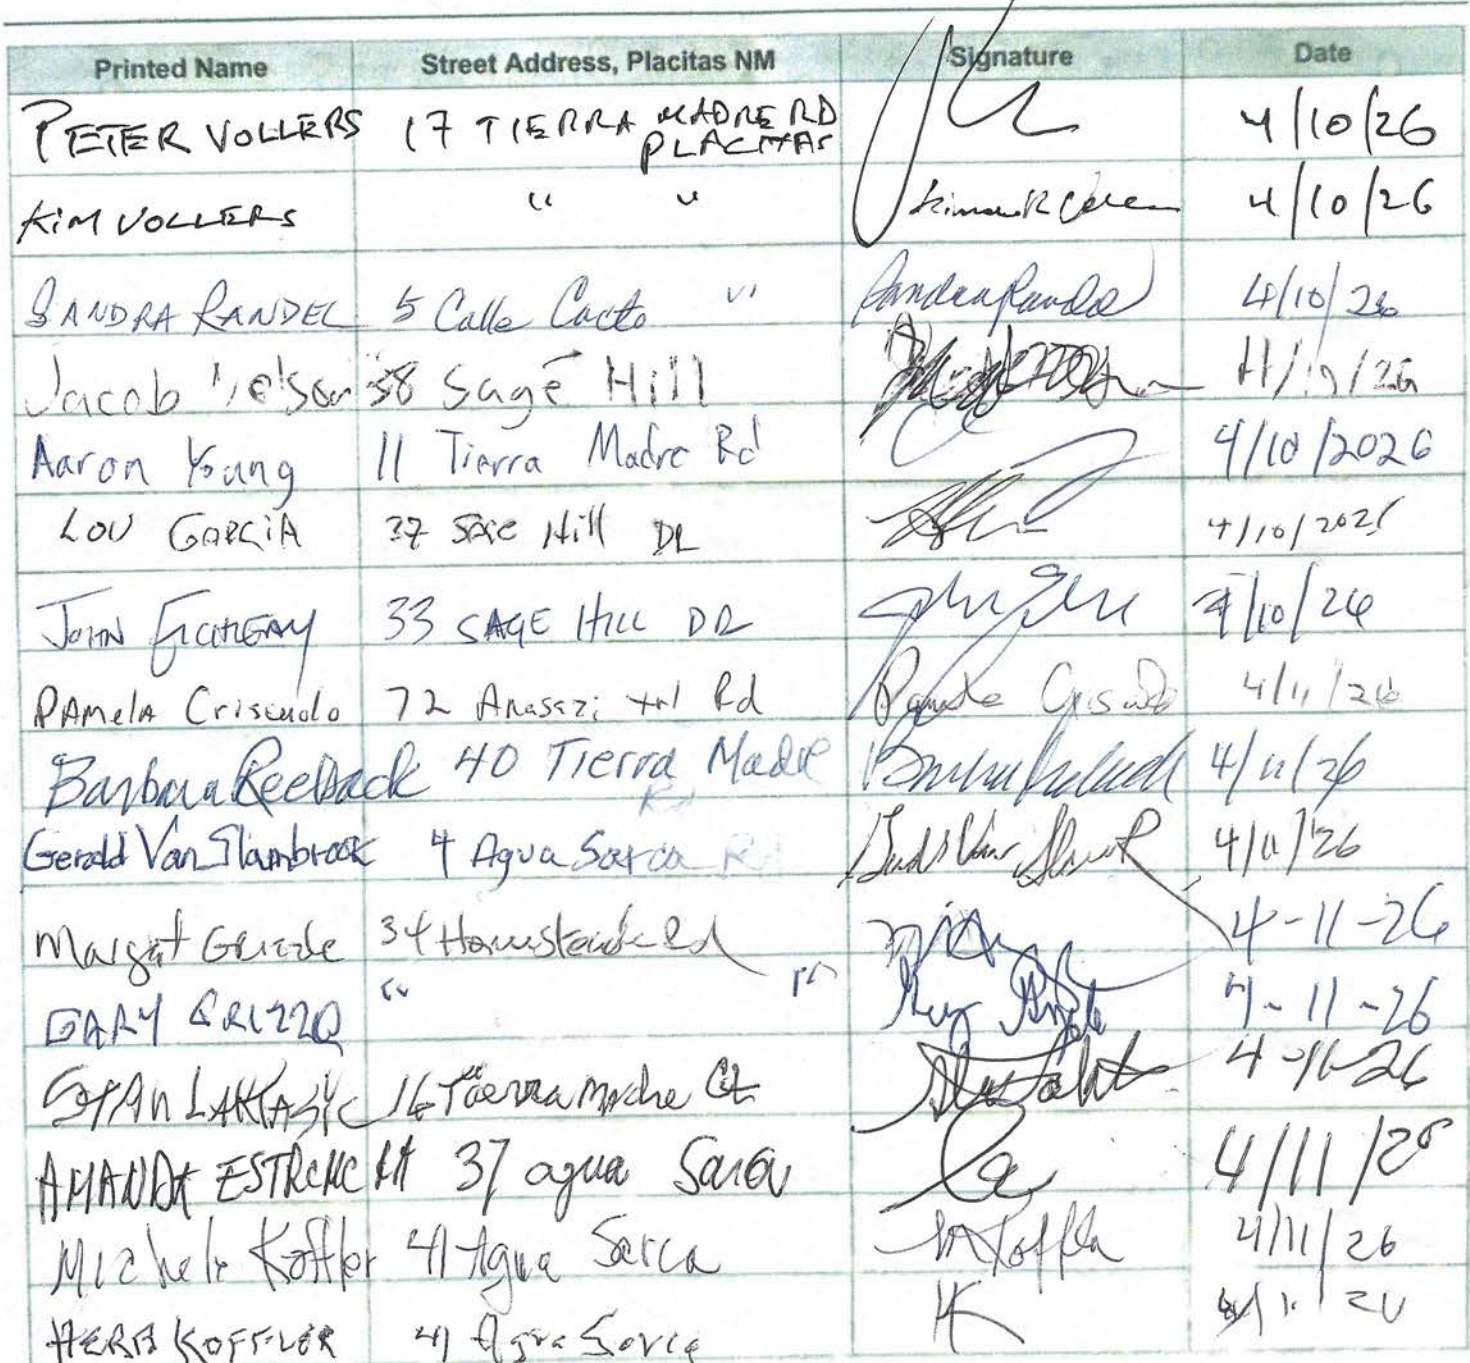 Printed Name Street Address, Placitas NM Signature Date
PETER VOLLERS 17 TIERRA MADRE RD PLACITAS 4/10/26
KIM VOLLERS " " 4/10/26
SANDRA RANDEL 5 Calle Cacto " Sandra Randel 4/10/26
Jacob 38 Sage Hill /26
Aaron Young 11 Tierra Madre Rd 4/10/2026
LOU GARCIA 37 Hill DR 4/10/202
JOHN 33 SAGE HILL DR 4/10/26
PAMelA Criscuolo 72 Anasazi trl Rd 4/11/26
Barbara Reeback 40 Tierra Madre Rd 4/11/26
Gerald Van Slambrook 4 Agua Sarca R 4/11/26
34 Rd 4-11-26
GARY " " 4-11-26
STAN 16 Ct 4-11-26
AMANDA 37 agua Sarca 4/11/26
Michele Koffler 41 Agua Sarca MKoffler 4/11/26
HERB KOFFLER 41 Agua Sarca HK